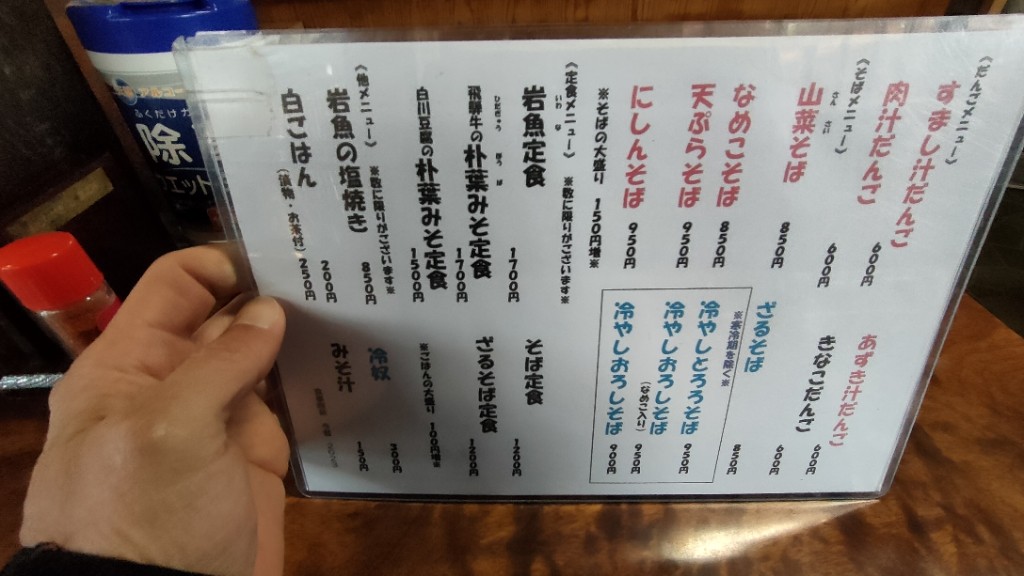 《だんごメニュー》
すまし汁だんご 600円
肉汁だんご 600円
あずき汁だんご 600円
きなこだんご 600円
《そばメニュー》
さんさい
山菜そば 850円
なめこそば 850円
天ぷらそば 950円
にしんそば 950円
※そばの大盛り 150円増※
ざるそば 850円
※寒冷期を除く※
冷やしとろろそば 950円
冷やしおろしそば 950円
(なめこ入り)
冷やしおろしそば 900円
《定食メニュー》 ※数に限りがございます※
いわな
岩魚定食 1700円
ひだぎゅう ほうば
飛騨牛の朴葉みそ定食 1700円
白川豆腐の朴葉みそ定食 1500円
そば定食 1200円
ざるそば定食 1200円
※ごはんの大盛り 100円増※
《他メニュー》 ※数に限りがございます※
岩魚の塩焼き 850円
白ごはん 200円
(漬物・お茶付) 250円
冷奴 300円
みそ汁 150円
アルコー
除
ウエット